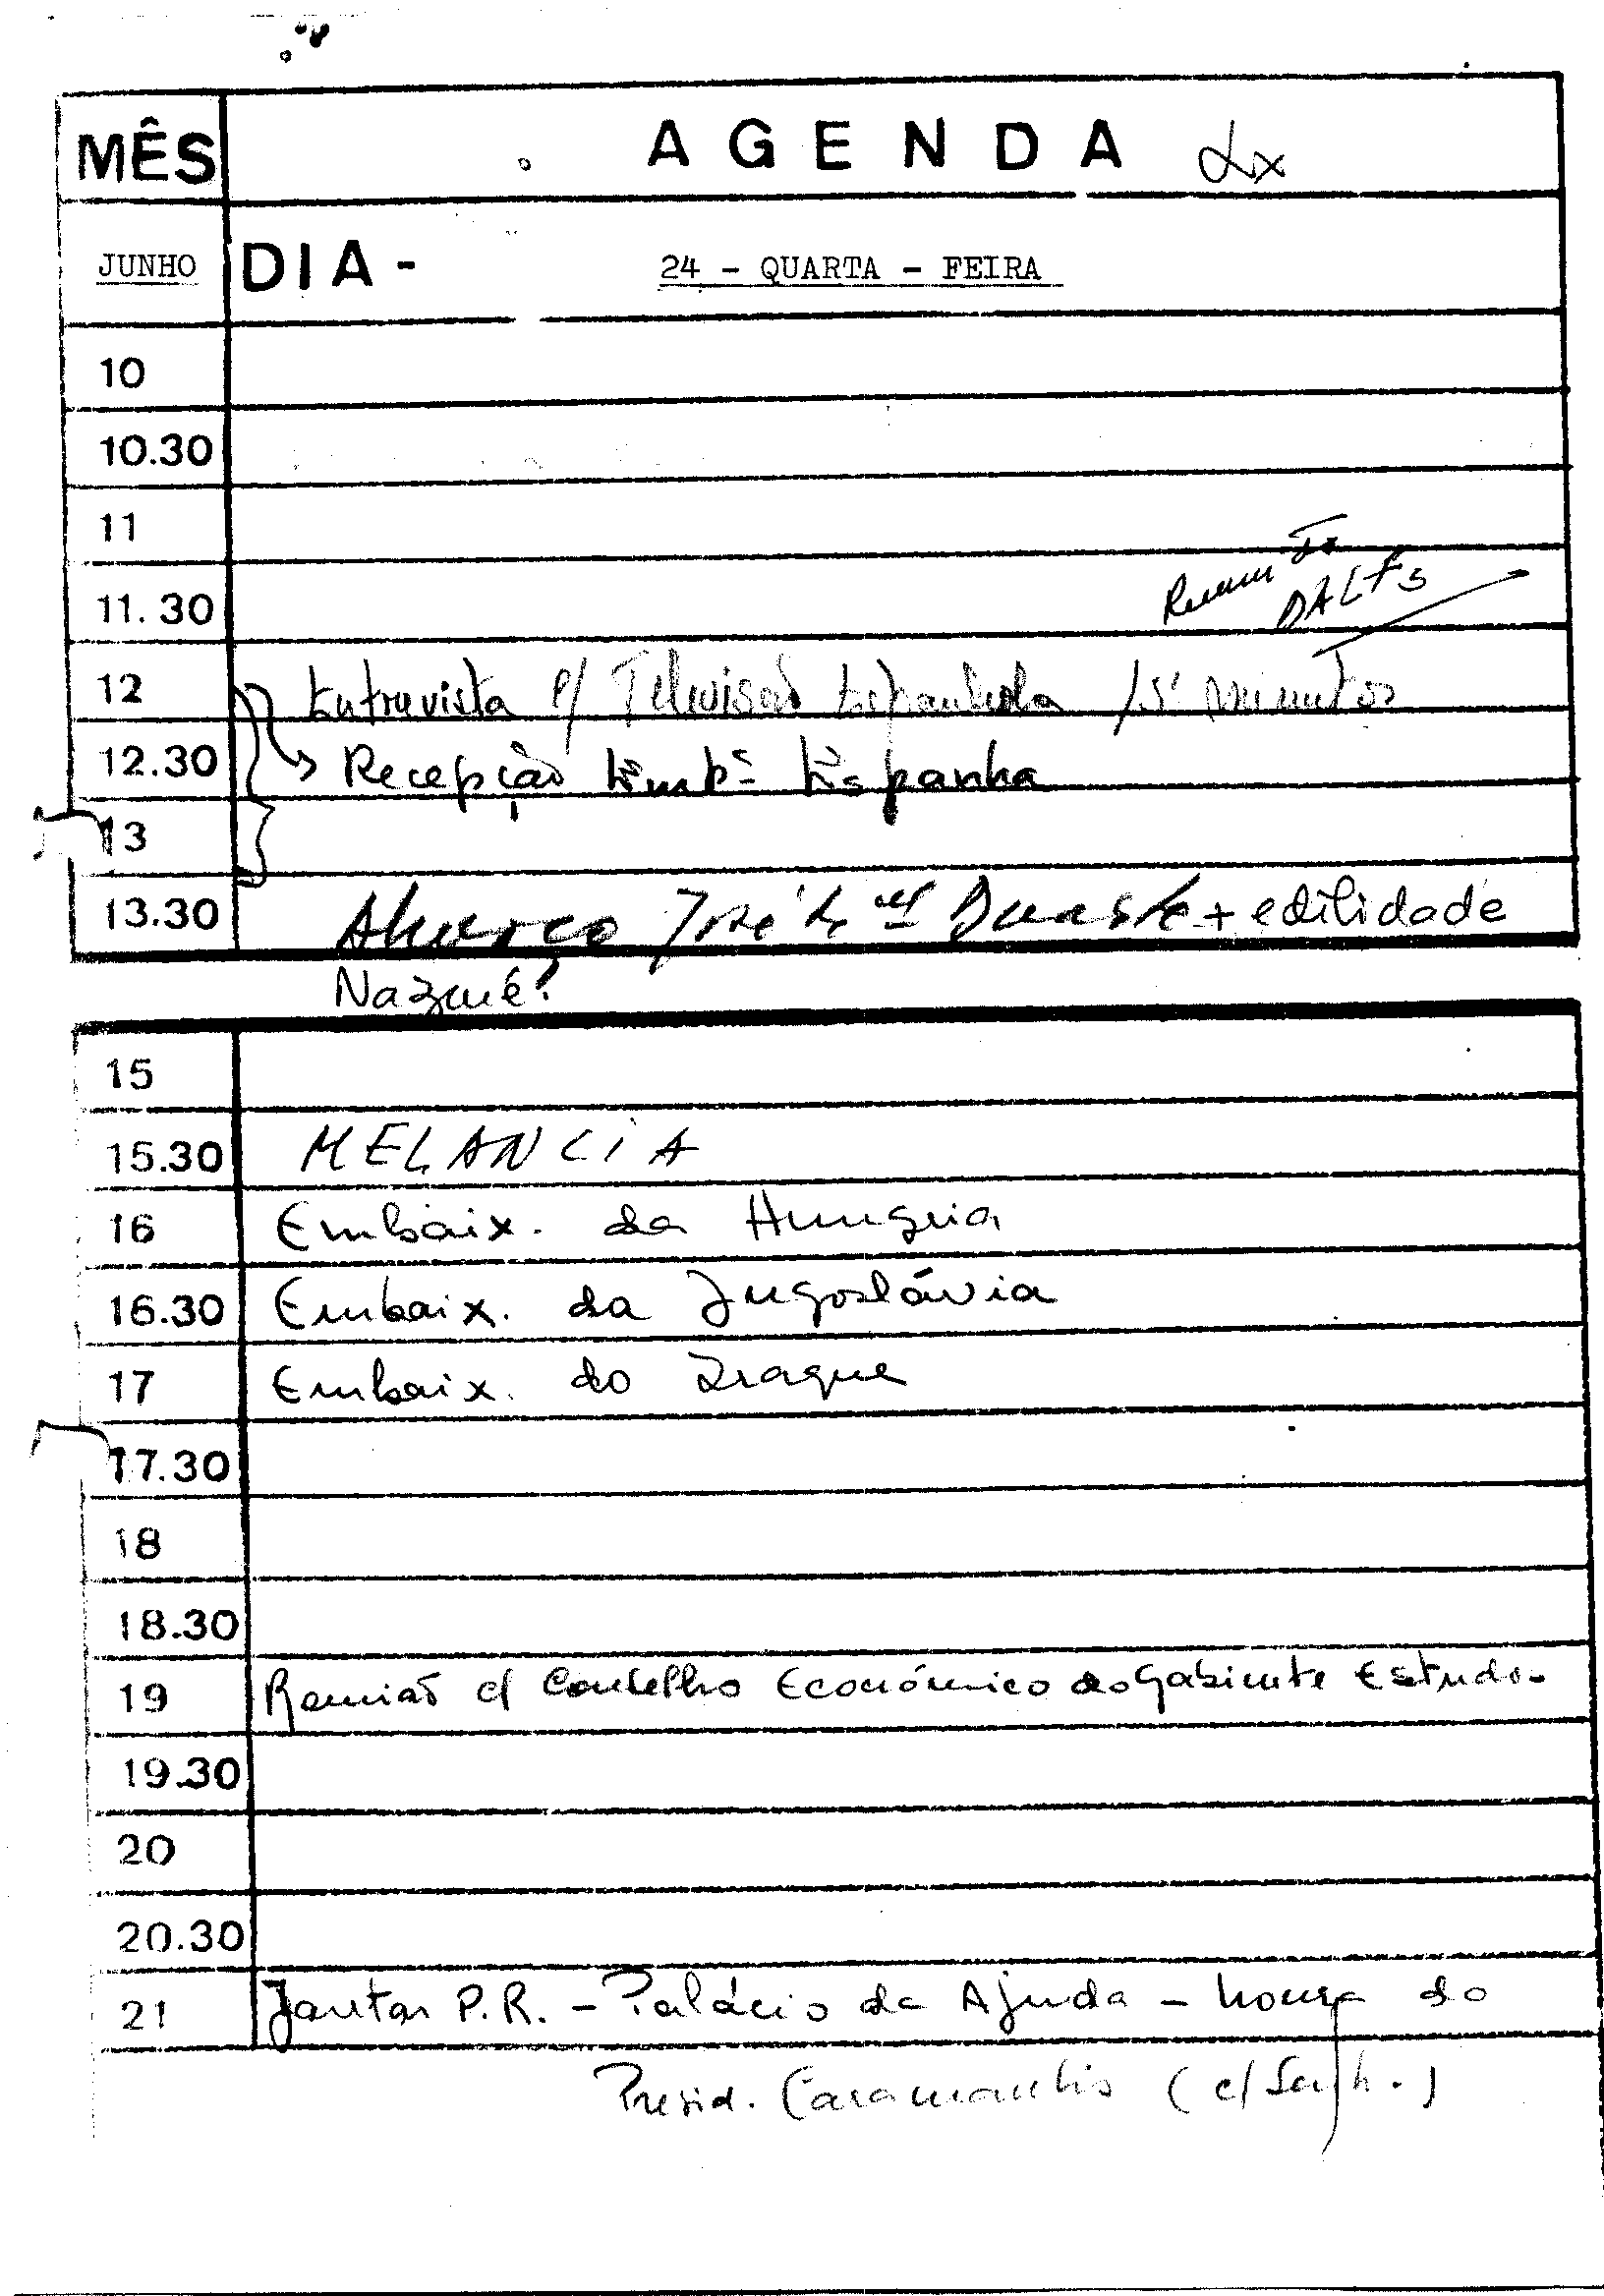 MÊS A G E N D A Lx
JUNHO DIA - 24 - QUARTA - FEIRA
10
10.30
11
11.30 DALFS
12 Entrevista p/ Televisão Espanhola 15 minutos
12.30 → Recepção Embª Espanha
13
13.30 Almoço José Duarte + edilidade
Nazaré!
15
15.30 MELANCIA
16 Embaix. da Hungria
16.30 Embaix. da Jugoslávia
17 Embaix. do Iraque
17.30
18
18.30
19 Reunião c/ Conselho Económico do Gabinete Estudos
19.30
20
20.30
21 Jantar P.R. - Palácio da Ajuda - honra do
Presid. Caramanlis (c/ Senh.)